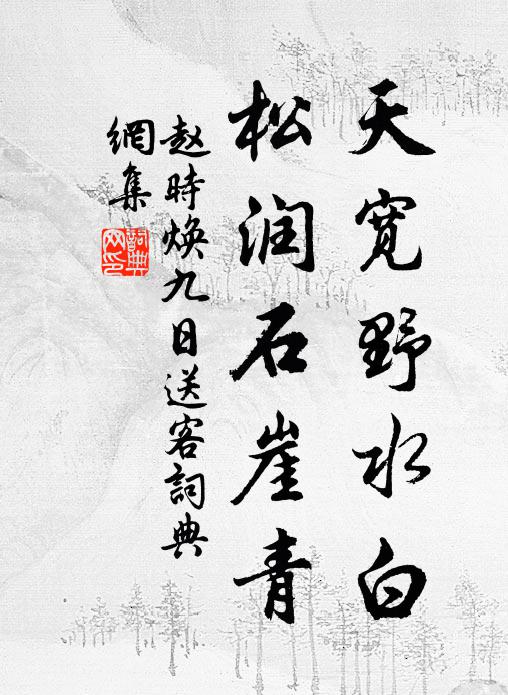 天宽野水白
松润石崖青
赵時焕九日送客詞典
網集
詞典網印